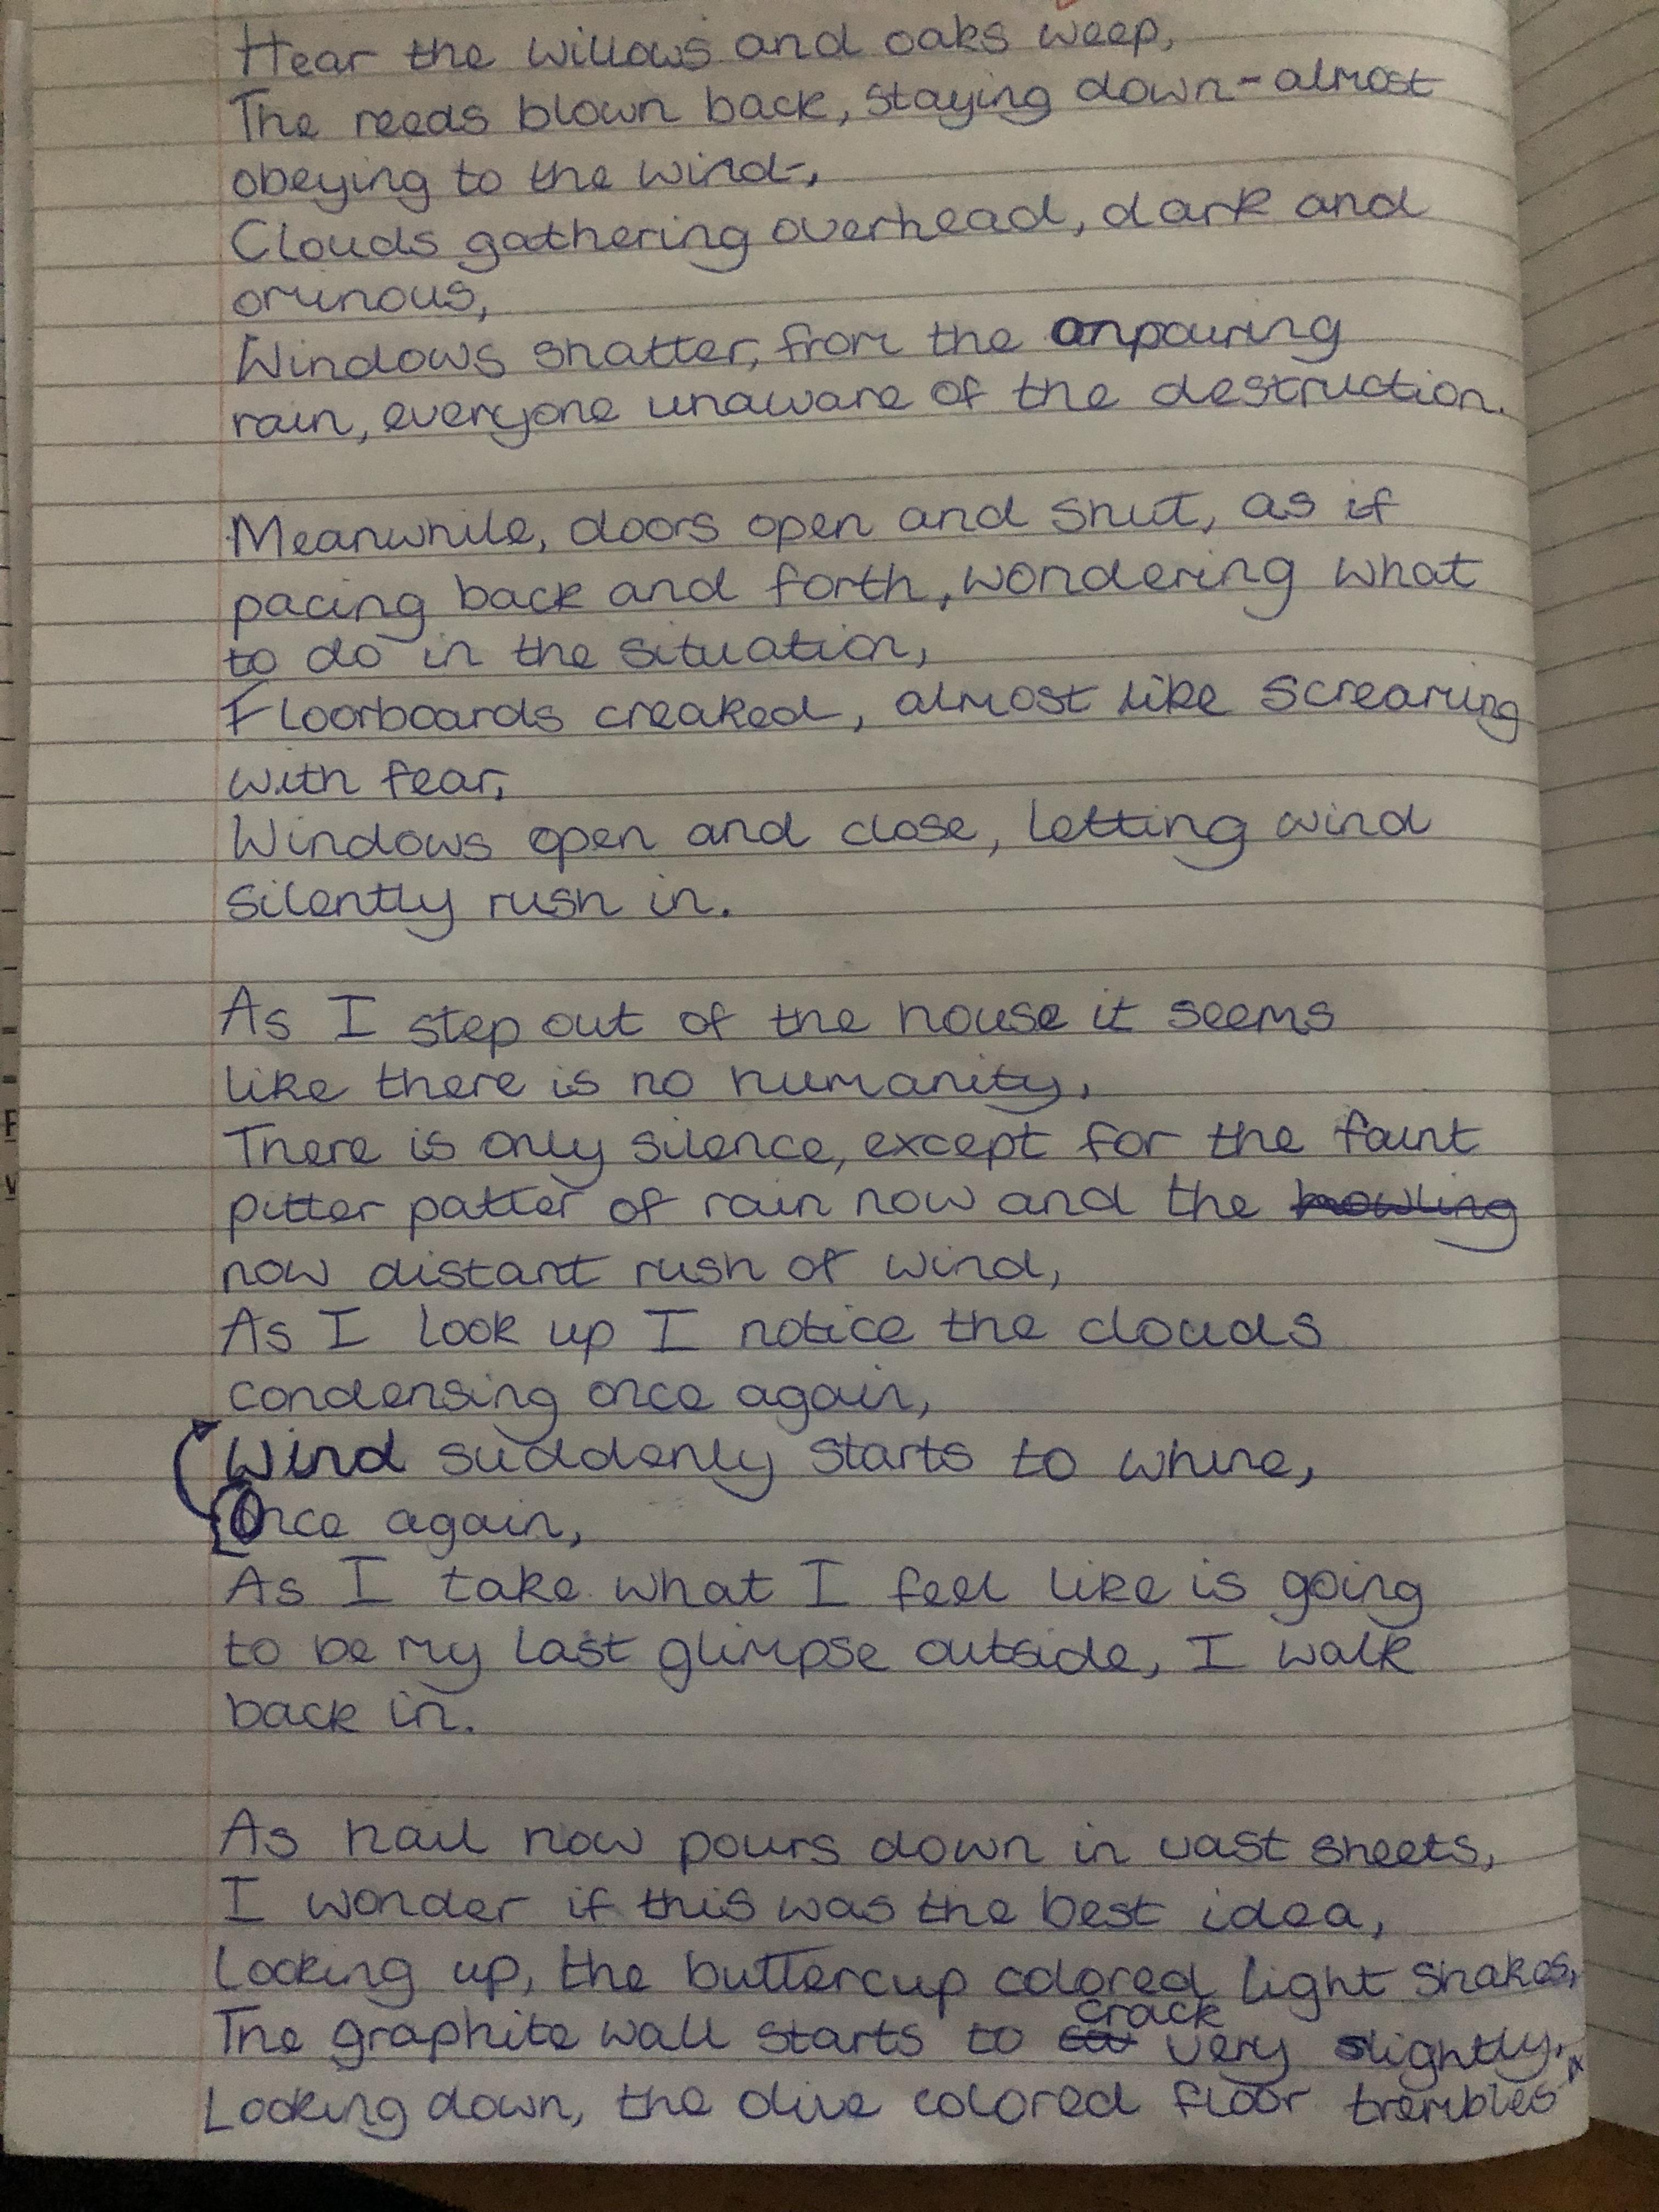 Hear the willows and oaks weep,
The reeds blown back, staying down-almost
obeying to the wind-,
Clouds gathering overhead, dark and
ominous,
Windows shatter, from the onpouring
rain, everyone unaware of the destruction.
Meanwhile, doors open and shut, as if
pacing back and forth, wondering what
to do in the situation,
Floorboards creaked, almost like screaming
with fear,
Windows open and close, letting wind
silently rush in.
As I step out of the house it seems
like there is no humanity,
There is only silence, except for the faint
pitter patter of rain now and the howling
now distant rush of wind,
As I look up I notice the clouds
condensing once again,
Wind suddenly starts to whine,
Once again,
As I take what I feel like is going
to be my last glimpse outside, I walk
back in.
As hail now pours down in vast sheets,
I wonder if this was the best idea,
Looking up, the buttercup colored light shakes,
crack
The graphite wall starts to very slightly,
Looking down, the olive colored floor trembles
F
V